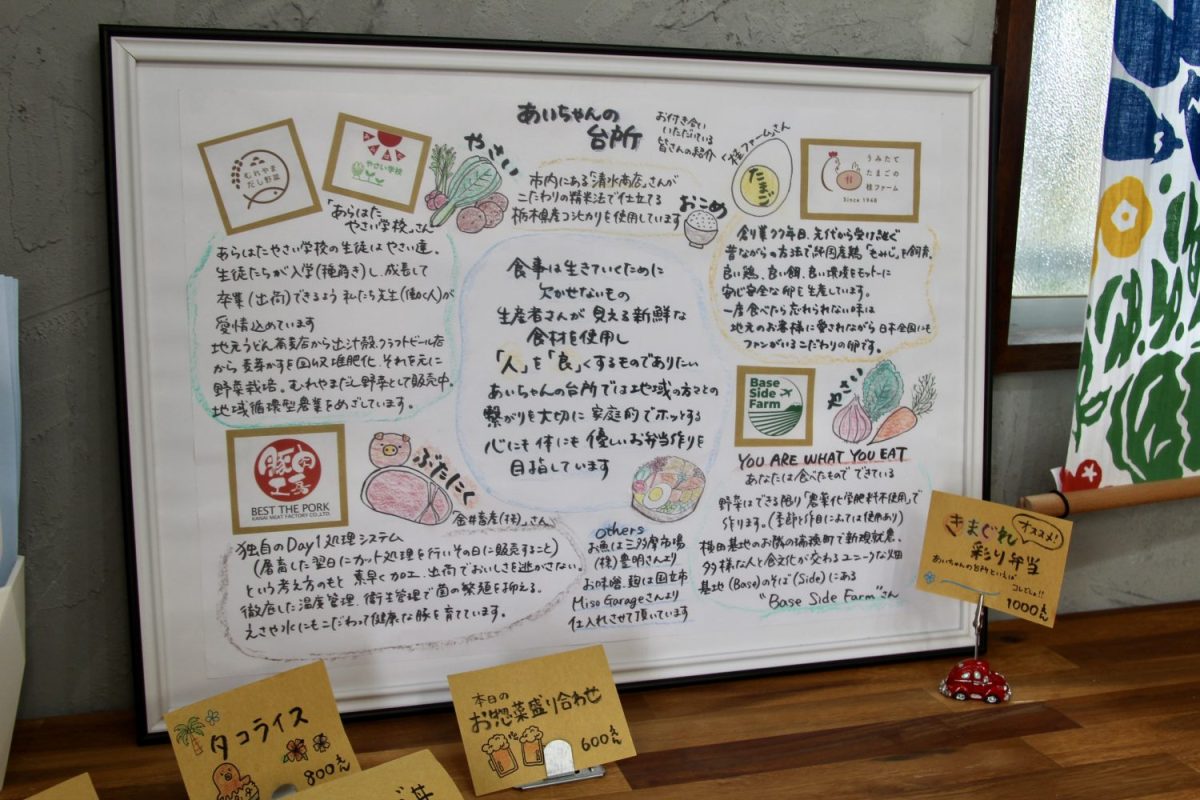 あいちゃんの
台所
お付き合い
いただいている
皆さんの紹介
むれやま
だし野菜
やさい学校
やさい
「あらはた
やさい学校」さん
あらはたやさい学校の生徒はやさい達。
生徒たちが入学(種蒔き)し、成長して
卒業(出荷)できるよう私たち先生(働く人)が
愛情込めています
地元うどん茶美店から出汁殻、クラフトビール店
から麦芽かすを回収堆肥化、それを元に
野菜栽培。むれやまだし野菜として販売中。
地域循環型農業をめざしています。
市内にある「清水商店」さんが
こだわりの精米法で仕立てる
栃木県産コシヒカリを使用しています
おこめ
食事は生きていくために
欠かせないもの
生産者さんが見える新鮮な
食材を使用し
「人」を「良」くするものでありたい
あいちゃんの台所では地域の方々との
繋がりを大切に家庭的でホッとする
心にも体にも優しいお弁当作りを
目指しています
ファームさん
たまご
うみたて
たまごの
ファーム
Since 1948
創業77年目、先代から受け継ぐ
昔ながらの方法で純国産鶏「もみじ」を飼育。
良い鶏、良い餌、良い環境をモットーに
安心安全な卵を生産しています。
一度食べたら忘れられない味は
地元のお客様に愛されながら日本全国にも
ファンがいるこだわりの卵です。
Base
Side
Farm
やさい
YOU ARE WHAT YOU EAT
あなたは食べたもので できている
野菜はできる限り「農薬化学肥料不使用」で
作ります。(季節と作目によっては使用あり)
横田基地のお隣の瑞穂町で新規就農。
多様な人と食文化が交わるユニークな畑
基地(Base)のそば(Side)にある
"Base Side Farm"さん
豚肉
工房
BEST THE PORK
KANAI MEAT FACTORY CO.,LTD.
ぶたにく
金井畜産(株)さん
独自のDay1処理システム
(屠畜した翌日にカット処理を行いその日に販売すること)
という考え方のもと 素早く加工、出荷でおいしさを逃がさない。
徹底した温度管理、衛生管理で菌の繁殖を抑える。
えさや水にもこだわって健康な豚を育てています。
others
お魚は三多摩市場
(株)豊明さんより
お味噌、麹は国立市
Miso Garageさんより
仕入れさせて頂いています
オススメ!
きまぐれ
彩り弁当
あいちゃんの台所といえば
コレでしょ!!
1000えん
タコライス
800えん
本日の
お惣菜盛り合わせ
600えん
丼